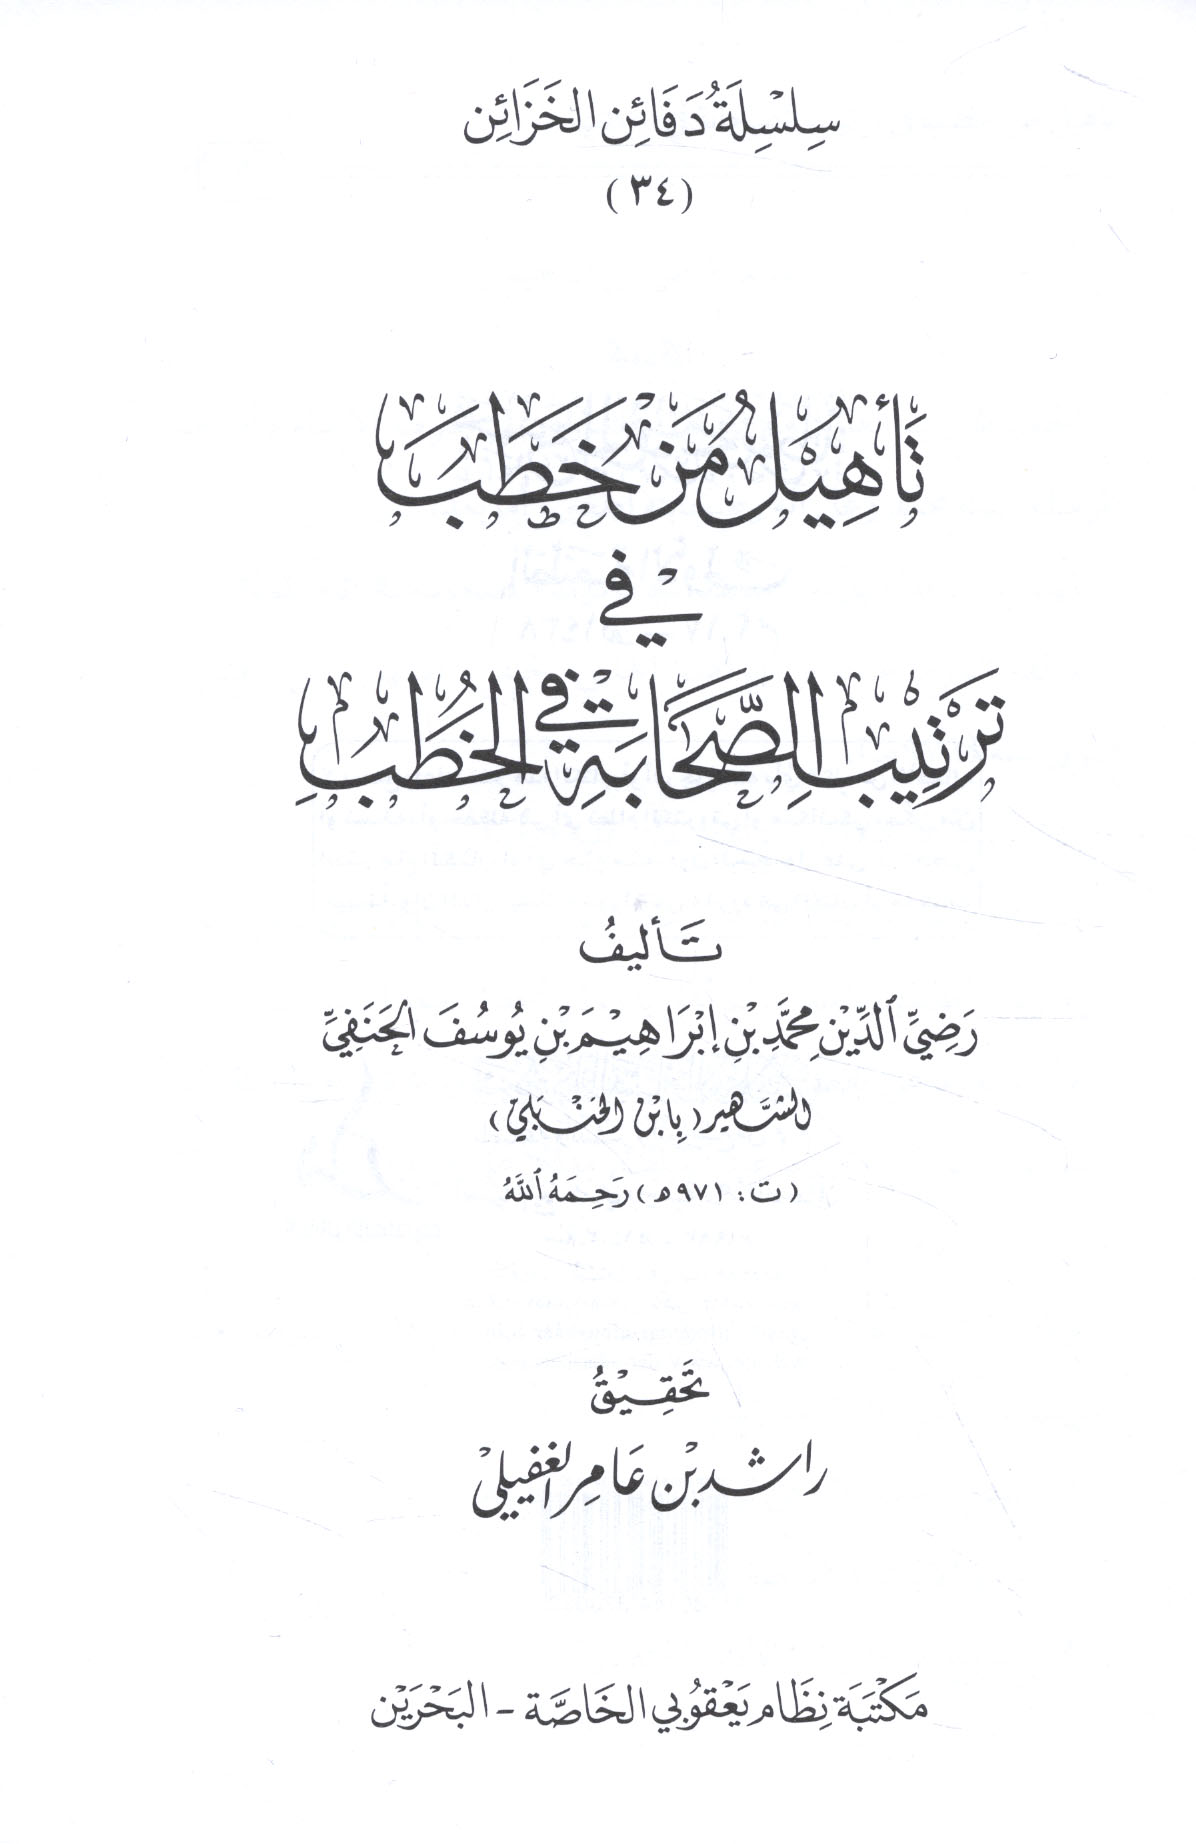 سِلْسِلَةُ دَفَائِنِ الخَزَائِنِ
(٣٤)
تَأْهِيلُ مَنْ خَطَبَ
فِي
تَرْتِيبِ الصَّحَابَةِ فِي الخُطَبِ
تَأليفُ
رَضِيِّ الدِّيْنِ مُحَمَّدِ بْنِ إِبْرَاهِيْمَ بْنِ يُوسُفَ الحَنَفِيِّ
الشَّهِير (بِابْنِ الحَنْبَلِيّ)
(ت: ٩٧١هـ) رَحِمَهُ اللَّهُ
تَحْقِيْقُ
رَاشِد بْن عَامِر الغفيليْ
مَكْتَبَة نِظَام يَعْقُوبِي الخَاصَّة - البَحْرَيْن